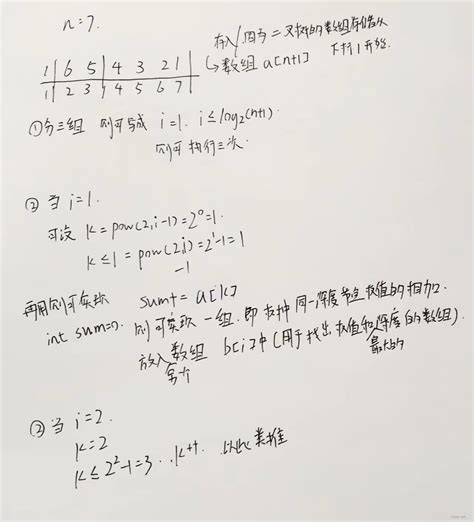 n=7.
存入/因为二叉树的数组存储从
1 | 6 5 | 4 3 2 1 | → 数组 a[n+1] 下标1开始.
1 | 2 3 | 4 5 6 7 |
①分三组 则可写成 i=1. i≤log₂(n+1).
则可执行三次.
② 当 i=1.
可设 k=pow(2,i-1)=2⁰=1.
k≤1=pow(2,i)=2¹-1=1
-1
再用则可实现 sum+=a[k]
int sum=0. 则可实现一组.即 同一深度 权值的相加.
放入数组 b[i]中(用于找出权值和 深度的数组).
另个 最大的
② 当 i=2.
k=2
k≤2²-1=3 .. k++. 以此类推